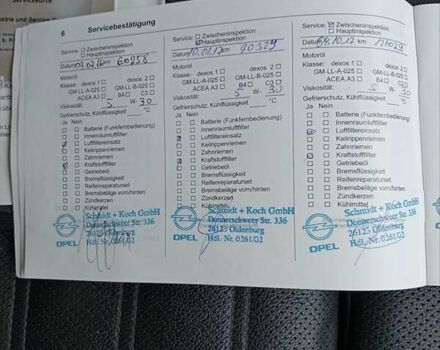 Servicekarte
6 Servicebestätigung
Service: Zwischeninspektion
Hauptinspektion
Datum km 60958
Motoröl
Klasse: dexos 1 dexos 2
GM-LL-A-025 GM-LL-B-025
ACEA A3 B4 C3
Viskosität: 5 W- 30
Gefrierschutz, Kühlflüssigkeit °C
Ja Nein
Batterie (Funkfernbedienung)
Innenraumluftfilter
Luftfiltereinsatz
Keilrippenriemen
Zahnriemen
Kraftstofffilter
Getriebeöl
Bremsflüssigkeit
Reifenreparaturset
Bremsbeläge vorn/hinten
Zündkerzen
Kühlmittel
OPEL
Schmidt + Koch GmbH
Donnerschweer Str. 336
26123 Oldenburg
Hdl. Nr. 0261/02
Service: Zwischeninspektion
Hauptinspektion
Datum 10.01.17 km 90329
Motoröl
Klasse: dexos 1 dexos 2
GM-LL-A-025 GM-LL-B-025
ACEA A3 B4 C3
Viskosität: 5 W- 30
Gefrierschutz, Kühlflüssigkeit °C
Ja Nein
Batterie (Funkfernbedienung)
Innenraumluftfilter
Luftfiltereinsatz
Keilrippenriemen
Zahnriemen
Kraftstofffilter
Getriebeöl
Bremsflüssigkeit
Reifenreparaturset
Bremsbeläge vorn/hinten
Zündkerzen
Kühlmittel
OPEL
Schmidt + Koch GmbH
Donnerschweer Str. 336
26123 Oldenburg
Hdl. Nr. 0261/02
Service: Zwischeninspektion
Hauptinspektion
Datum km
Motoröl
Klasse: dexos 1 dexos 2
GM-LL-A-025 GM-LL-B-025
ACEA A3 B4 C3
Viskosität: 5 W- 30
Gefrierschutz, Kühlflüssigkeit °C
Ja Nein
Batterie (Funkfernbedienung)
Innenraumluftfilter
Luftfiltereinsatz
Keilrippenriemen
Zahnriemen
Kraftstofffilter
Getriebeöl
Bremsflüssigkeit
Reifenreparaturset
Bremsbeläge vorn/hinten
Zündkerzen
Kühlmittel
OPEL
Schmidt + Koch GmbH
Donnerschweer Str. 336
26123 Oldenburg
Hdl. Nr. 0261/02